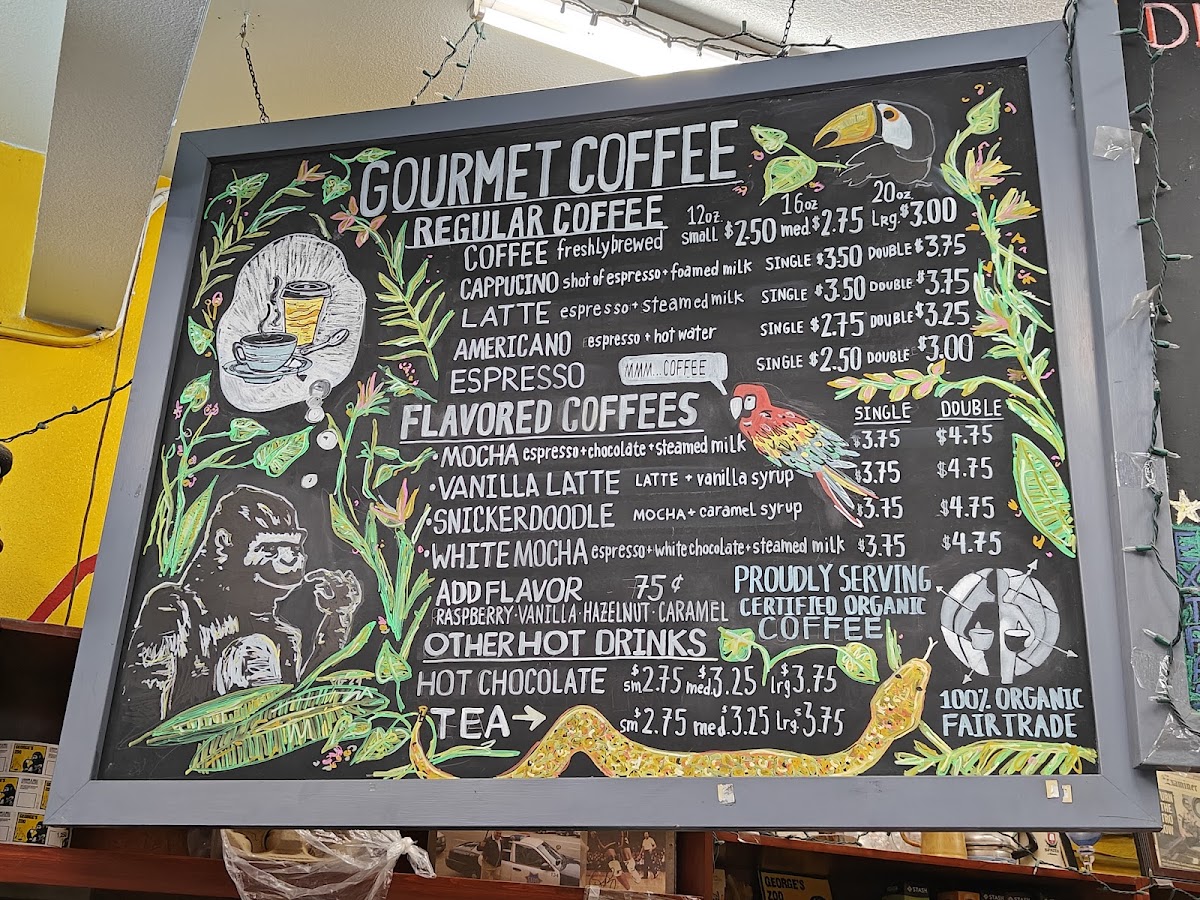 GOURMET COFFEE
REGULAR COFFEE
12oz. 16oz 20oz.
COFFEE freshly brewed small $2.50 med $2.75 Lrg. $3.00
CAPPUCINO shot of espresso + foamed milk SINGLE $3.50 DOUBLE $3.75
LATTE espresso + steamed milk SINGLE $3.50 DOUBLE $3.75
AMERICANO espresso + hot water SINGLE $2.75 DOUBLE $3.25
ESPRESSO SINGLE $2.50 DOUBLE $3.00
MMM...COFFEE
FLAVORED COFFEES SINGLE DOUBLE
• MOCHA espresso + chocolate + steamed milk $3.75 $4.75
• VANILLA LATTE LATTE + vanilla syrup $3.75 $4.75
• SNICKERDOODLE MOCHA + caramel syrup $3.75 $4.75
• WHITE MOCHA espresso + white chocolate + steamed milk $3.75 $4.75
ADD FLAVOR 75¢
RASPBERRY · VANILLA · HAZELNUT · CARAMEL
PROUDLY SERVING
CERTIFIED ORGANIC
COFFEE
OTHER HOT DRINKS
HOT CHOCOLATE sm $2.75 med. $3.25 lrg $3.75
TEA → sm $2.75 med. $3.25 Lrg. $3.75
100% ORGANIC
FAIR TRADE
GEORGE'S
ZOO
STASH